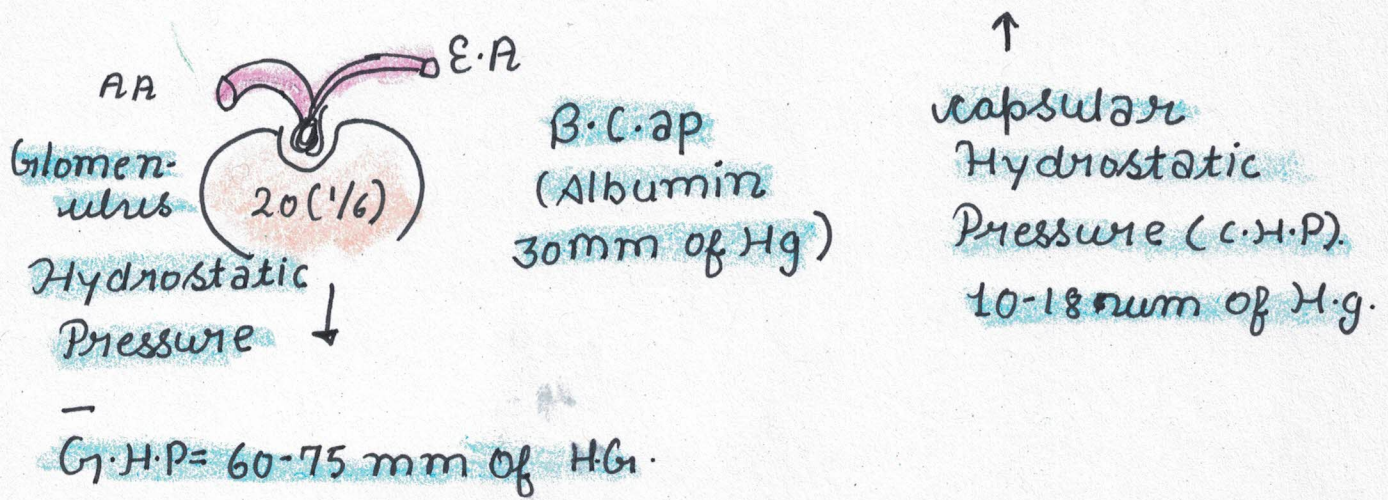 AA
E.A
Glomen-
ulus
20 (1/6)
Hydrostatic ↓
Pressure
G.H.P= 60-75 mm of H.G.
B.C.ap
(Albumin
30mm of Hg)
↑
capsular
Hydrostatic
Pressure (C.H.P).
10-18 mm of H.g.